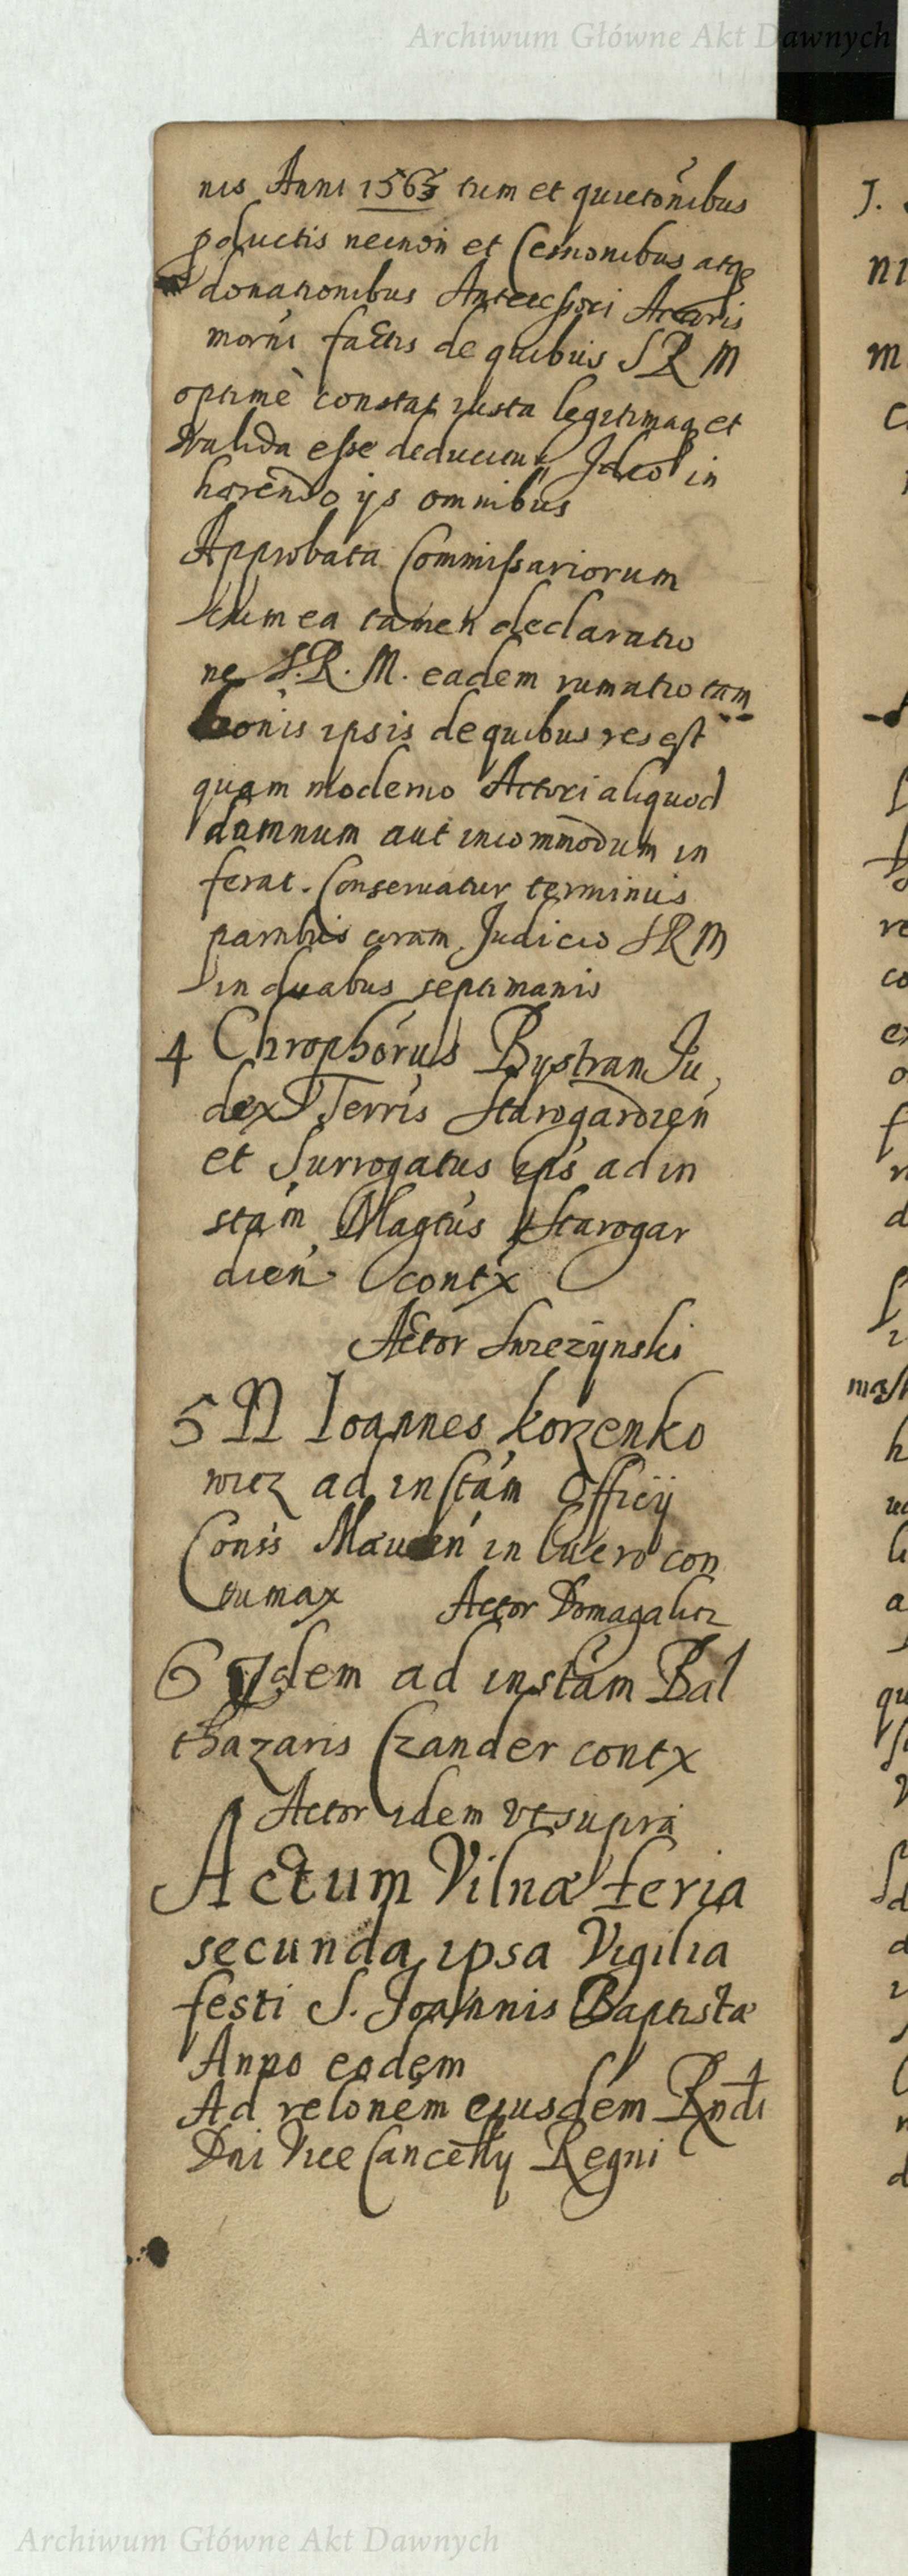 Archiwum Główne Akt Dawnych
nis Anni 1563 tum et quietoñibus
productis necnon et Cessionibus atqꝫ
donationibus Antecessori Actoris
morñi factis de quibus S R M
optimè constat iusta legitimaq et
valida esse deducunt Ideo in
hærendo ijs omnibus
Approbata Commissariorum
cum ea tamen declaratio
ne S. R. M. eadem rumatio tam
bonis ipsis de quibus res est
quam moderno Actori aliquod
damnum aut incommodum in
ferat. Conseruatur terminus
partibus coram Judicio S R M
in duabus septimanis
4 Chrophorus Bystram Ju
dex Terris Starogardień
et Surrogatus eius ad in
stań Magtus Starogar
dień contx
Actor Surezÿnski
5 N Ioannes Korzenko
wicz ad instań Officij
Conss in Lucro con
tumax Actor Domagalicz
6 Idem ad instań Bal
thazaris Czander contx
Actor idem vt supra
Actum Vilnæ feria
secunda ipsa Vigilia
festi S. Joannis Baptistæ
Anno eodem
Ad relonem eiusdem Rndi
Dni Vice Cancellij Regni
Archiwum Główne Akt Dawnych